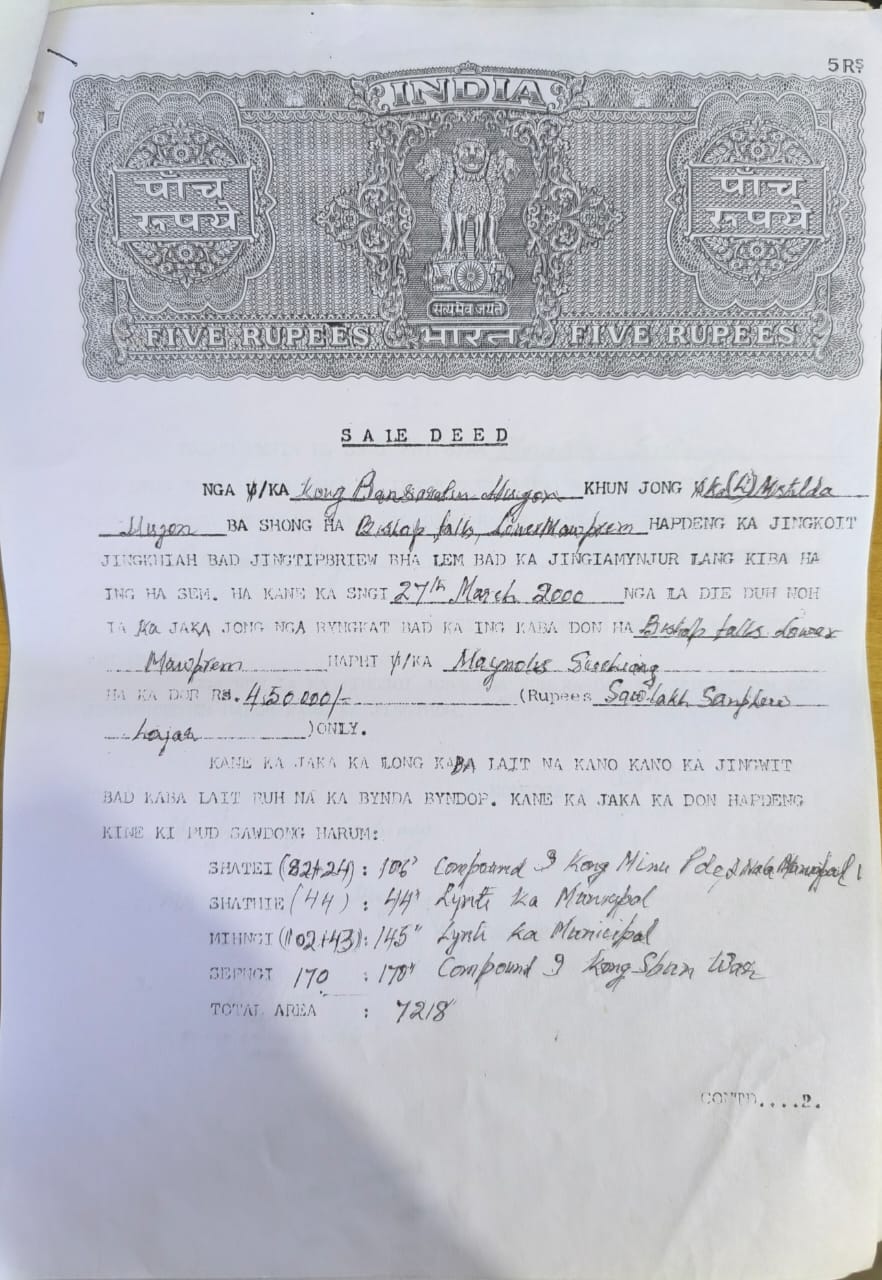 5 RS.
INDIA
पाँच रूपये
पाँच रूपये
सत्यमेव जयते
FIVE RUPEES भारत FIVE RUPEES
SALE DEED
NGA U/KA Kong KHUN JONG U/K(L) Matilda
BA SHONG HA Bishop falls Lower Mawprem HAPDENG KA JINGKOIT
JINGKHIAH BAD JINGTIPBRIEW BHA LEM BAD KA JINGIAMYNJUR LANG KIBA HA
ING HA SEM. HA KANE KA SNGI 27th March 2000 NGA LA DIE DUH NOH
IA KA JAKA JONG NGA RYNGKAT BAD KA ING KABA DON HA Bishop falls Lower
Mawprem HAPHI U/KA
HA KA DOR RS. 4,50,000/- (Rupees Saw lakh Sanphew
hajar )ONLY.
KANE KA JAKA KA LONG KABA LAIT NA KANO KANO KA JINGWIT
BAD KABA LAIT RUH NA KA BYNDA BYNDOP. KANE KA JAKA KA DON HAPDENG
KINE KI PUD SAWDONG HARUM:
SHATEI (82+24) : 106' Compound Kong Minu
SHATHIE (44) : 44' Lynti ka Municipal
MIHNGI (102+43) : 145" Lynti ka Municipal
SEPNGI 170 : 170' Compound Kong
TOTAL AREA : 7218
CONTD....2.